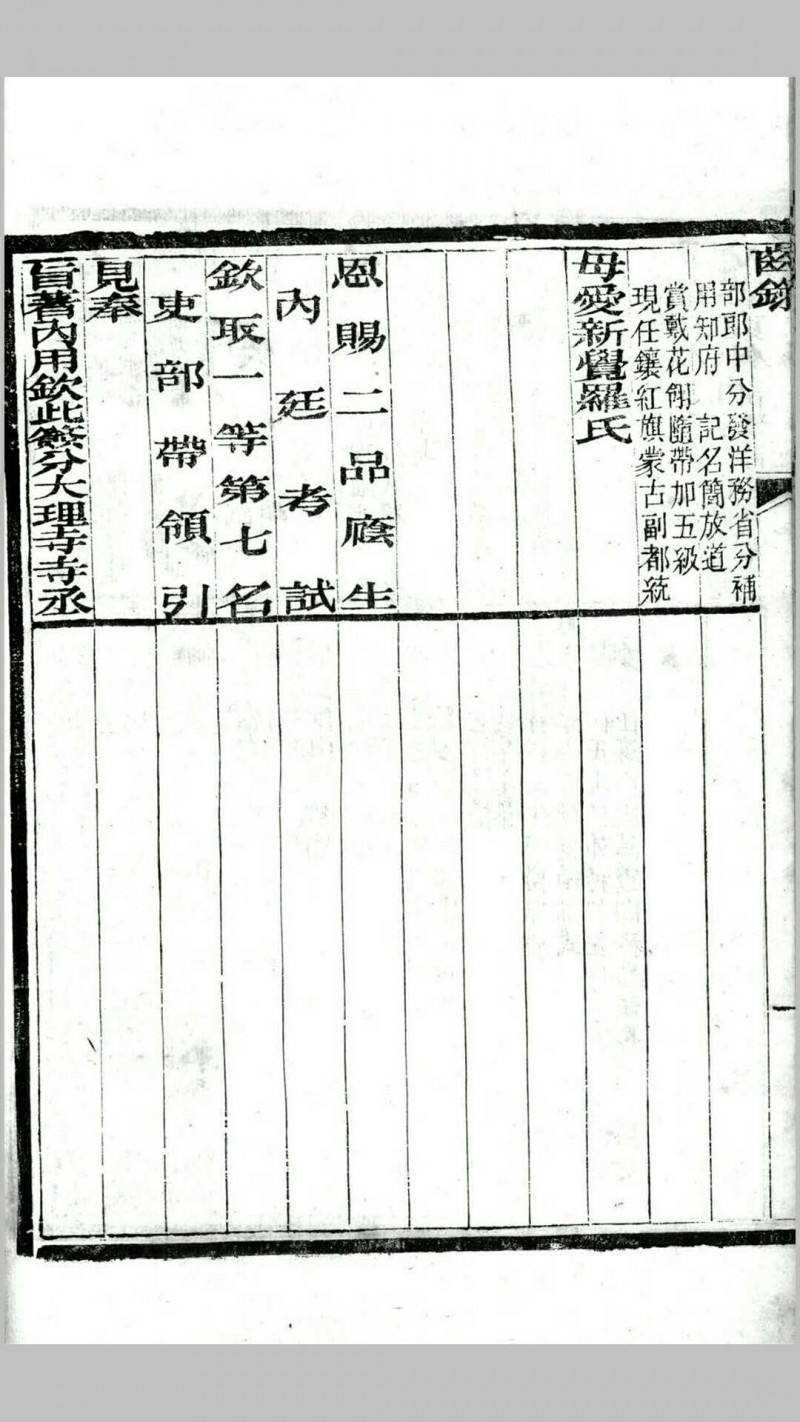 齒錄
部郎中分發洋務省分補
用知府 記名簡放道
賞戴花翎隨帶加五級
現任鑲紅旗蒙古副都統
母愛新覺羅氏
恩賜二品廕生
內廷考試
欽取一等第七名
吏部帶領引
見奉
旨著內用欽此簽分大理寺寺丞